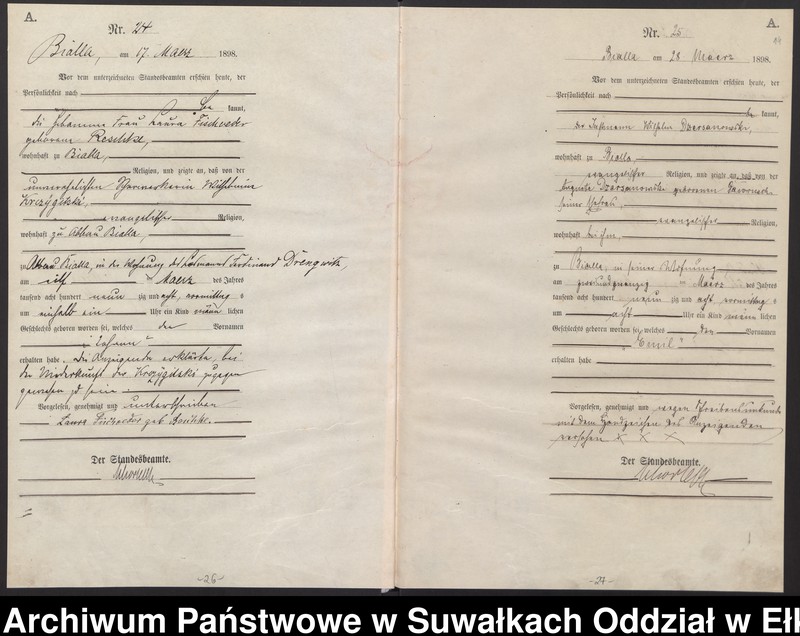 A.
Nr. 24
Bialla, am 17. Maerz 1898.
Vor dem unterzeichneten Standesbeamten erschien heute, der
Persönlichkeit nach
kannt,
die Hebamme Frau Laura Fischoeder
geborene
wohnhaft zu Bialla,
Religion, und zeigte an, daß von der
unverehelichten Wilhelmine
evangelischer Religion,
wohnhaft zu Abbau Bialla,
zu Abbau Bialla, in der Wohnung des Losmanns Ferdinand
am elf Maerz des Jahres
tausend acht hundert neun zig und acht, vormittag s
um ein Uhr ein Kind männ lichen
Geschlechts geboren worden sei, welches den Vornamen
"Johann"
erhalten habe. Die Anzeigende erklärte, bei
der Niederkunft der zugegen
gewesen zu sein
Vorgelesen, genehmigt und unterschrieben
Laura Fischoeder geb.
Der Standesbeamte.
-26-
A.
Nr. 25
Bialla am 28 Maerz 1898.
Vor dem unterzeichneten Standesbeamten erschien heute, der
Persönlichkeit nach
be kannt,
der Wilhelm
wohnhaft zu Bialla
evangelischer Religion, und zeigte an, daß von der
Auguste geborenen
seiner Ehefrau,
evangelischer Religion,
wohnhaft bei ihm,
zu Bialla, in seiner Wohnung
am Maerz des Jahres
tausend acht hundert neun zig und acht vormittag s
um acht Uhr ein Kind männ lichen
Geschlechts geboren worden sei, welches den Vornamen
"Emil"
erhalten habe
Vorgelesen, genehmigt und wegen Schreibensunkunde
mit dem Handzeichen des Anzeigenden
versehen X X X
Der Standesbeamte.
-27-
Archiwum Państwowe w Suwałkach Oddział w Ełk